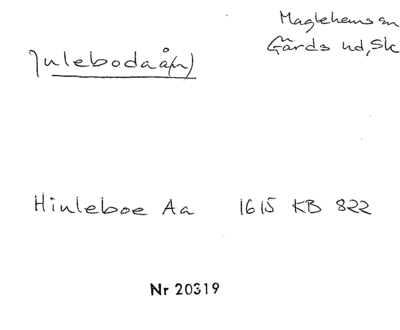 Maglehems sn
Julebodaå(n)
Gärds hd, Sk
Hiuleboe Aa 1615 KB 822
Nr 20319